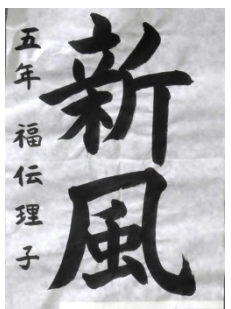 新風
五年 福伝理子